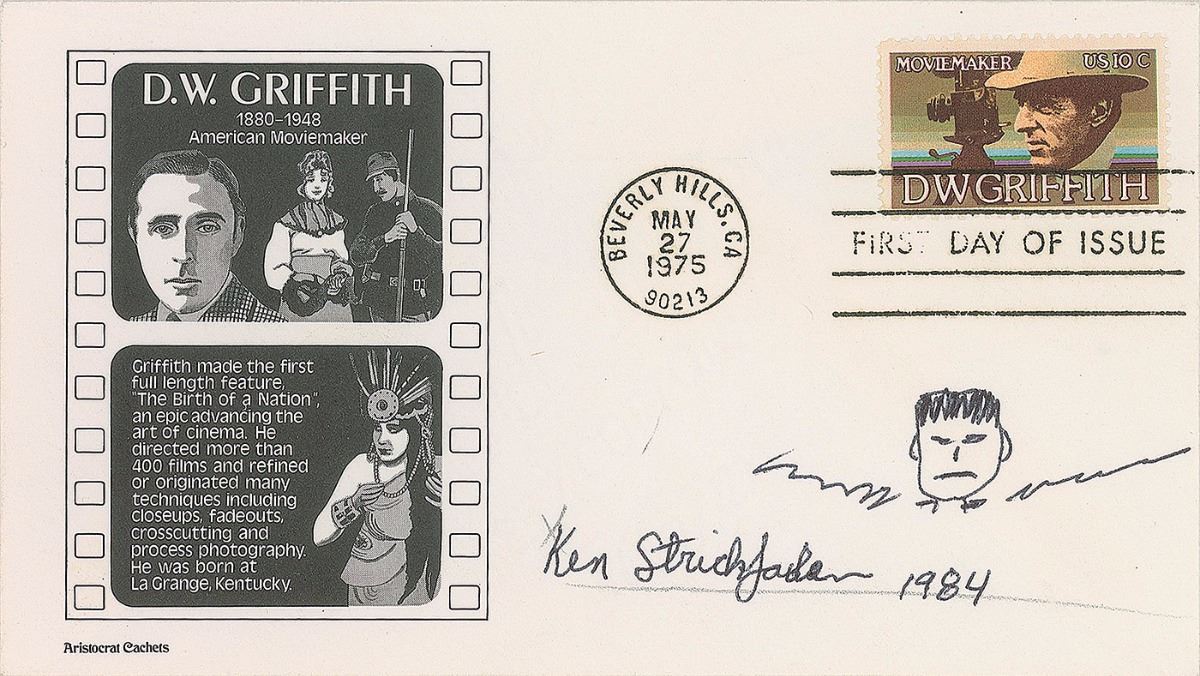 D.W. GRIFFITH
1880-1948
American Moviemaker
Griffith made the first
full length feature,
"The Birth of a Nation",
an epic advancing the
art of cinema. He
directed more than
400 films and refined
or originated many
techniques including
closeups, fadeouts,
crosscutting and
process photography.
He was born at
La Grange, Kentucky.
Aristocrat Cachets
MOVIEMAKER US 10 C
DW GRIFFITH
BEVERLY HILLS, CA
MAY
27
1975
90213
FIRST DAY OF ISSUE
Ken Strickfaden 1984